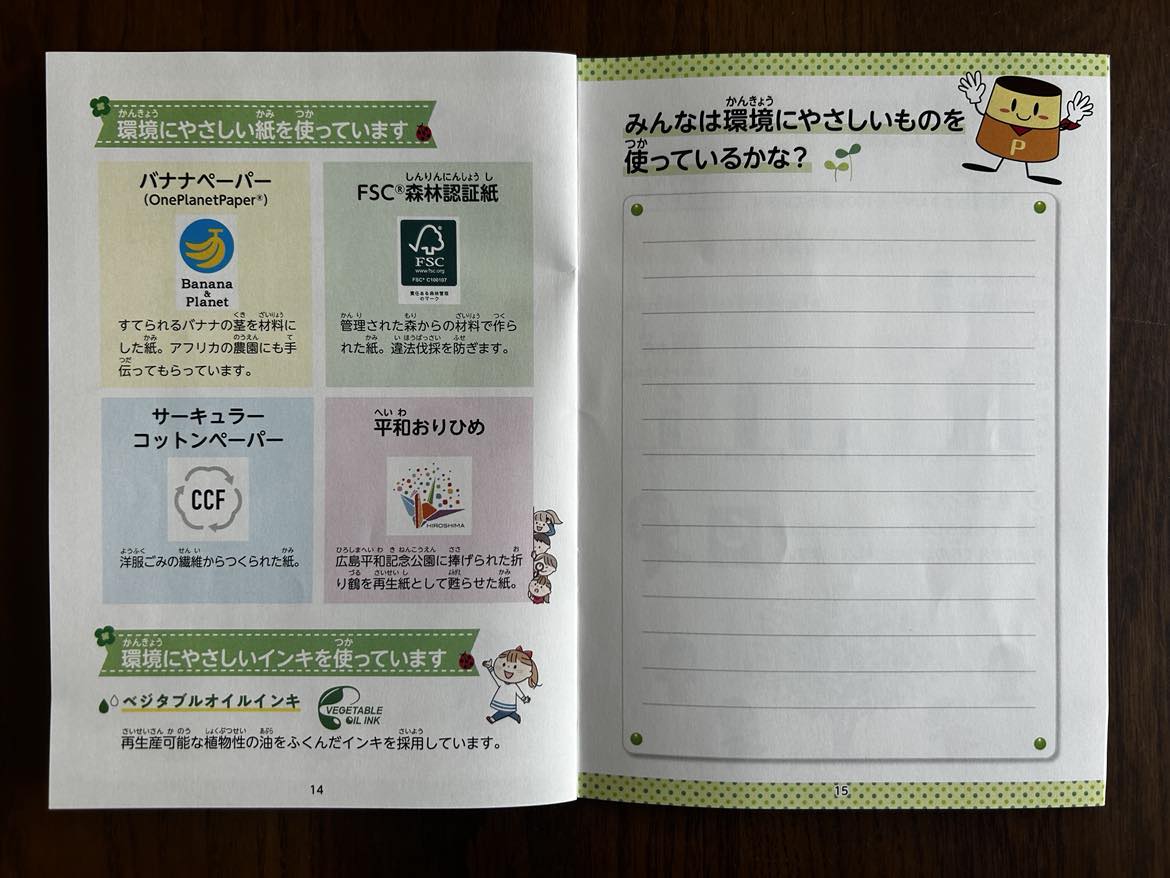 環境にやさしい紙を使っています
バナナペーパー
(OnePlanetPaper®)
Banana
&
Planet
すてられるバナナの茎を材料に
した紙。アフリカの農園にも手
伝ってもらっています。
FSC®森林認証紙
FSC
www.fsc.org
FSC® C100107
責任ある森林管理
のマーク
管理された森からの材料で作ら
れた紙。違法伐採を防ぎます。
サーキュラー
コットンペーパー
CCF
洋服ごみの繊維からつくられた紙。
平和おりひめ
HIROSHIMA
広島平和記念公園に捧げられた折
り鶴を再生紙として甦らせた紙。
環境にやさしいインキを使っています
ベジタブルオイルインキ
VEGETABLE
OIL INK
再生産可能な植物性の油をふくんだインキを採用しています。
14
みんなは環境にやさしいものを
使っているかな?
P
15